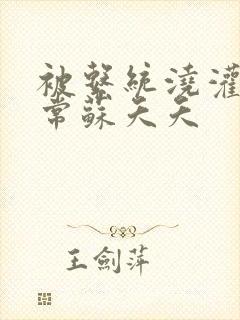 被繫統澆灌
常蘇天天
王劍萍